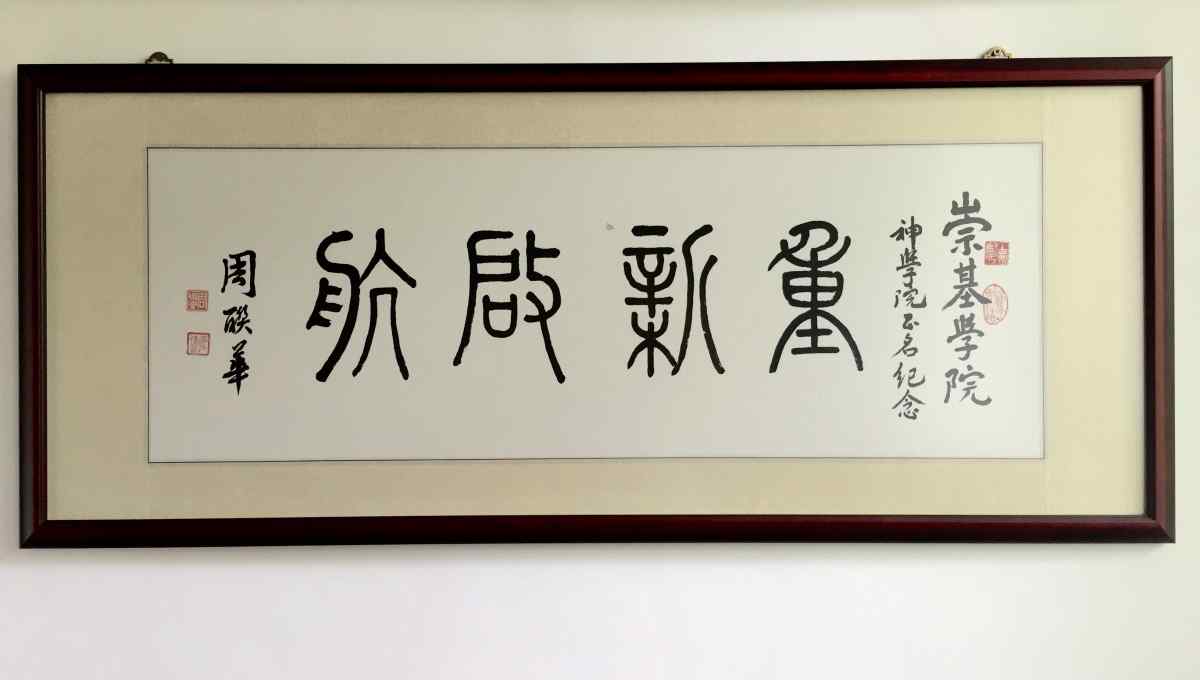 崇基学院
神學院正名纪念
重新啟航
周聯華